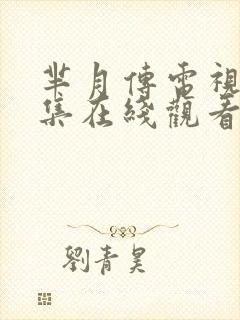 芈月傳電視
集在綫觀看
劉青昊